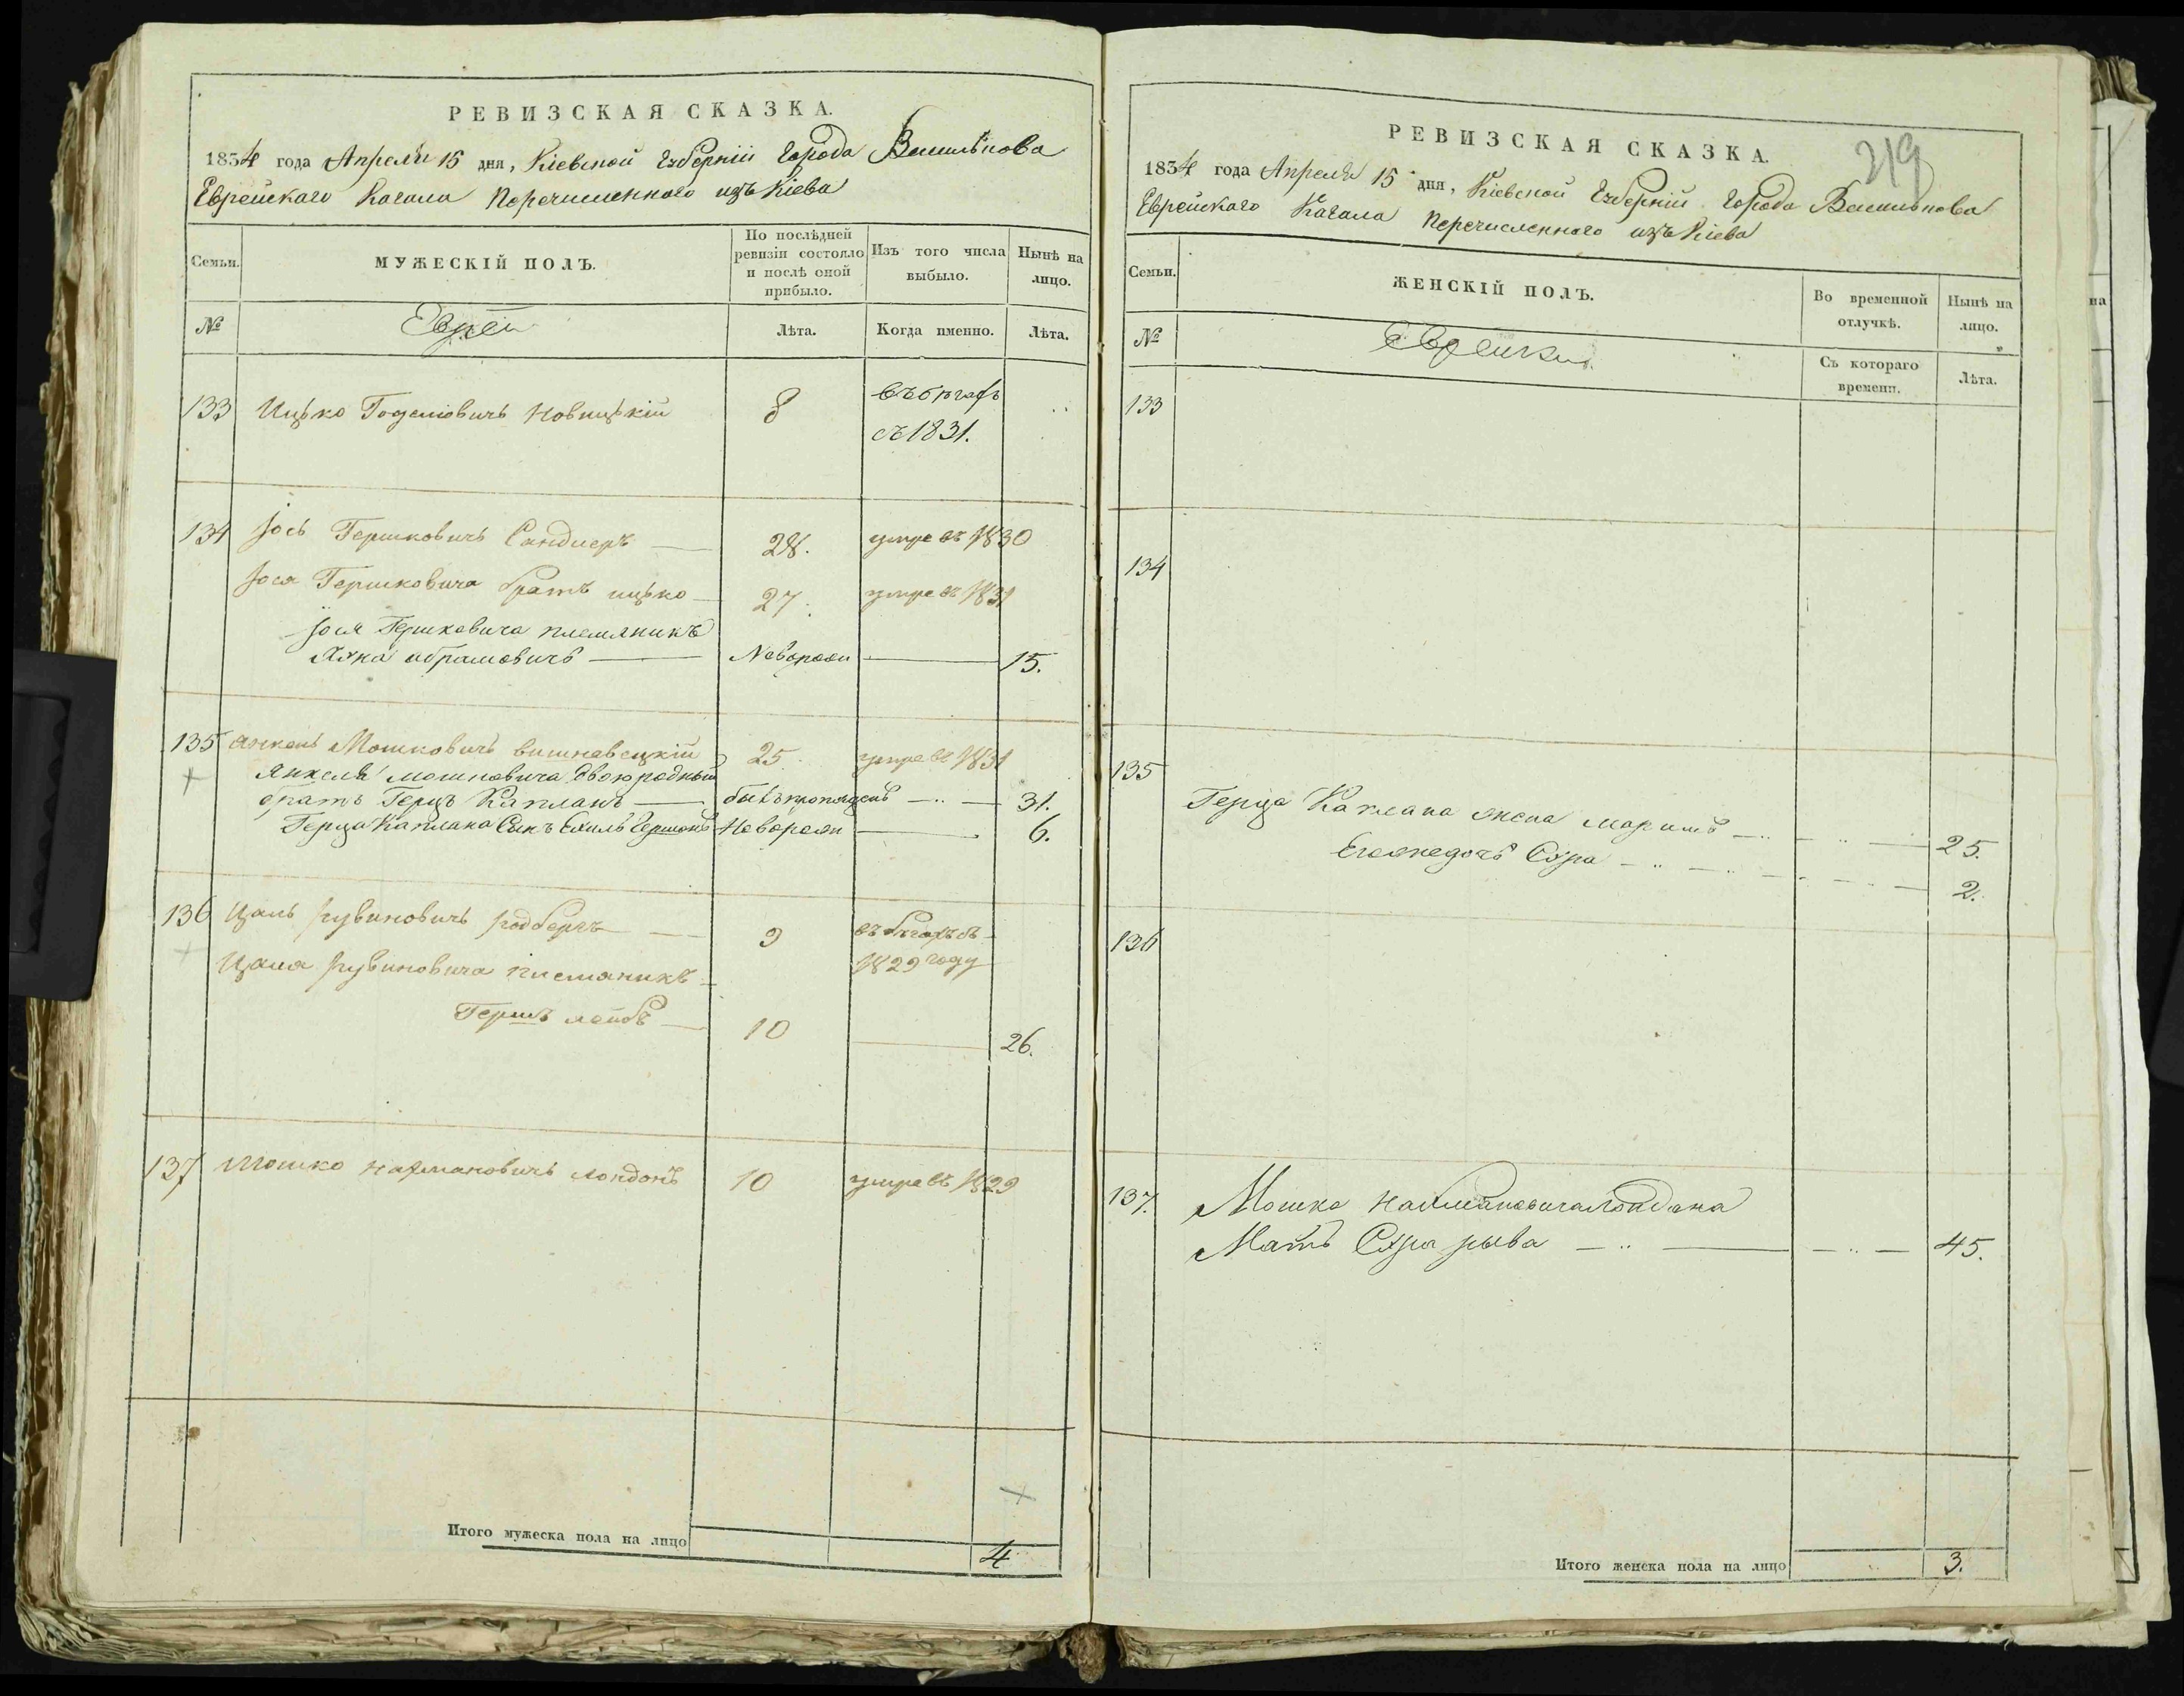 РЕВИЗСКАЯ СКАЗКА.
1834 года Апреля 15 дня, Кіевской Губерніи Города Василькова
Еврейскаго Кагала Перечисленного изъ Кіева
Семьи.
МУЖЕСКІЙ ПОЛЪ.
По послѣдней ревизіи состояло и послѣ оной прибыло.
Изъ того числа выбыло.
Нынѣ на лицо.
№
Евреи
Лѣта.
Когда именно.
Лѣта.
133 Ицько Новицькій 8 въ бѣгахъ
съ 1831.
134 Іось Гершковичъ Сандлеръ 28. умре въ 1830
Іося Гершковича братъ ицько 27. умре въ 1831
Іося Гершковича племяникъ
абрамовичъ 15.
135 Янкель Мошковичъ вишневецкій 25. умре въ 1831
Янкеля мошковича двоюродный
братъ Герцъ Капланъ бывъ пропущенъ 31.
Герца Каплана Сынъ 6.
136 Цаль рувиновичъ родбергъ 9 въ бѣгахъ съ
1829 году
Цаля рувиновича племяникъ
Гершъ лейбъ 10 26.
137 Мошко нахмановичъ лондонъ 10 умре въ 1829
Итого мужеска пола на лицо 4
219
РЕВИЗСКАЯ СКАЗКА.
1834 года Апреля 15 дня, Кіевской Губерніи Города Василькова
Еврейскаго Кагала Перечисленного изъ Кіева
Семьи.
ЖЕНСКІЙ ПОЛЪ.
Во временной отлучкѣ.
Нынѣ на лицо.
№
Еврейки
Съ котораго времени.
Лѣта.
133
134
135
Герца Каплана жена 25.
Его же дочь Сура 2.
136
137. Мошка нахмановича лондона
Мать Сура рыва 45.
Итого женска пола на лицо 3.
на